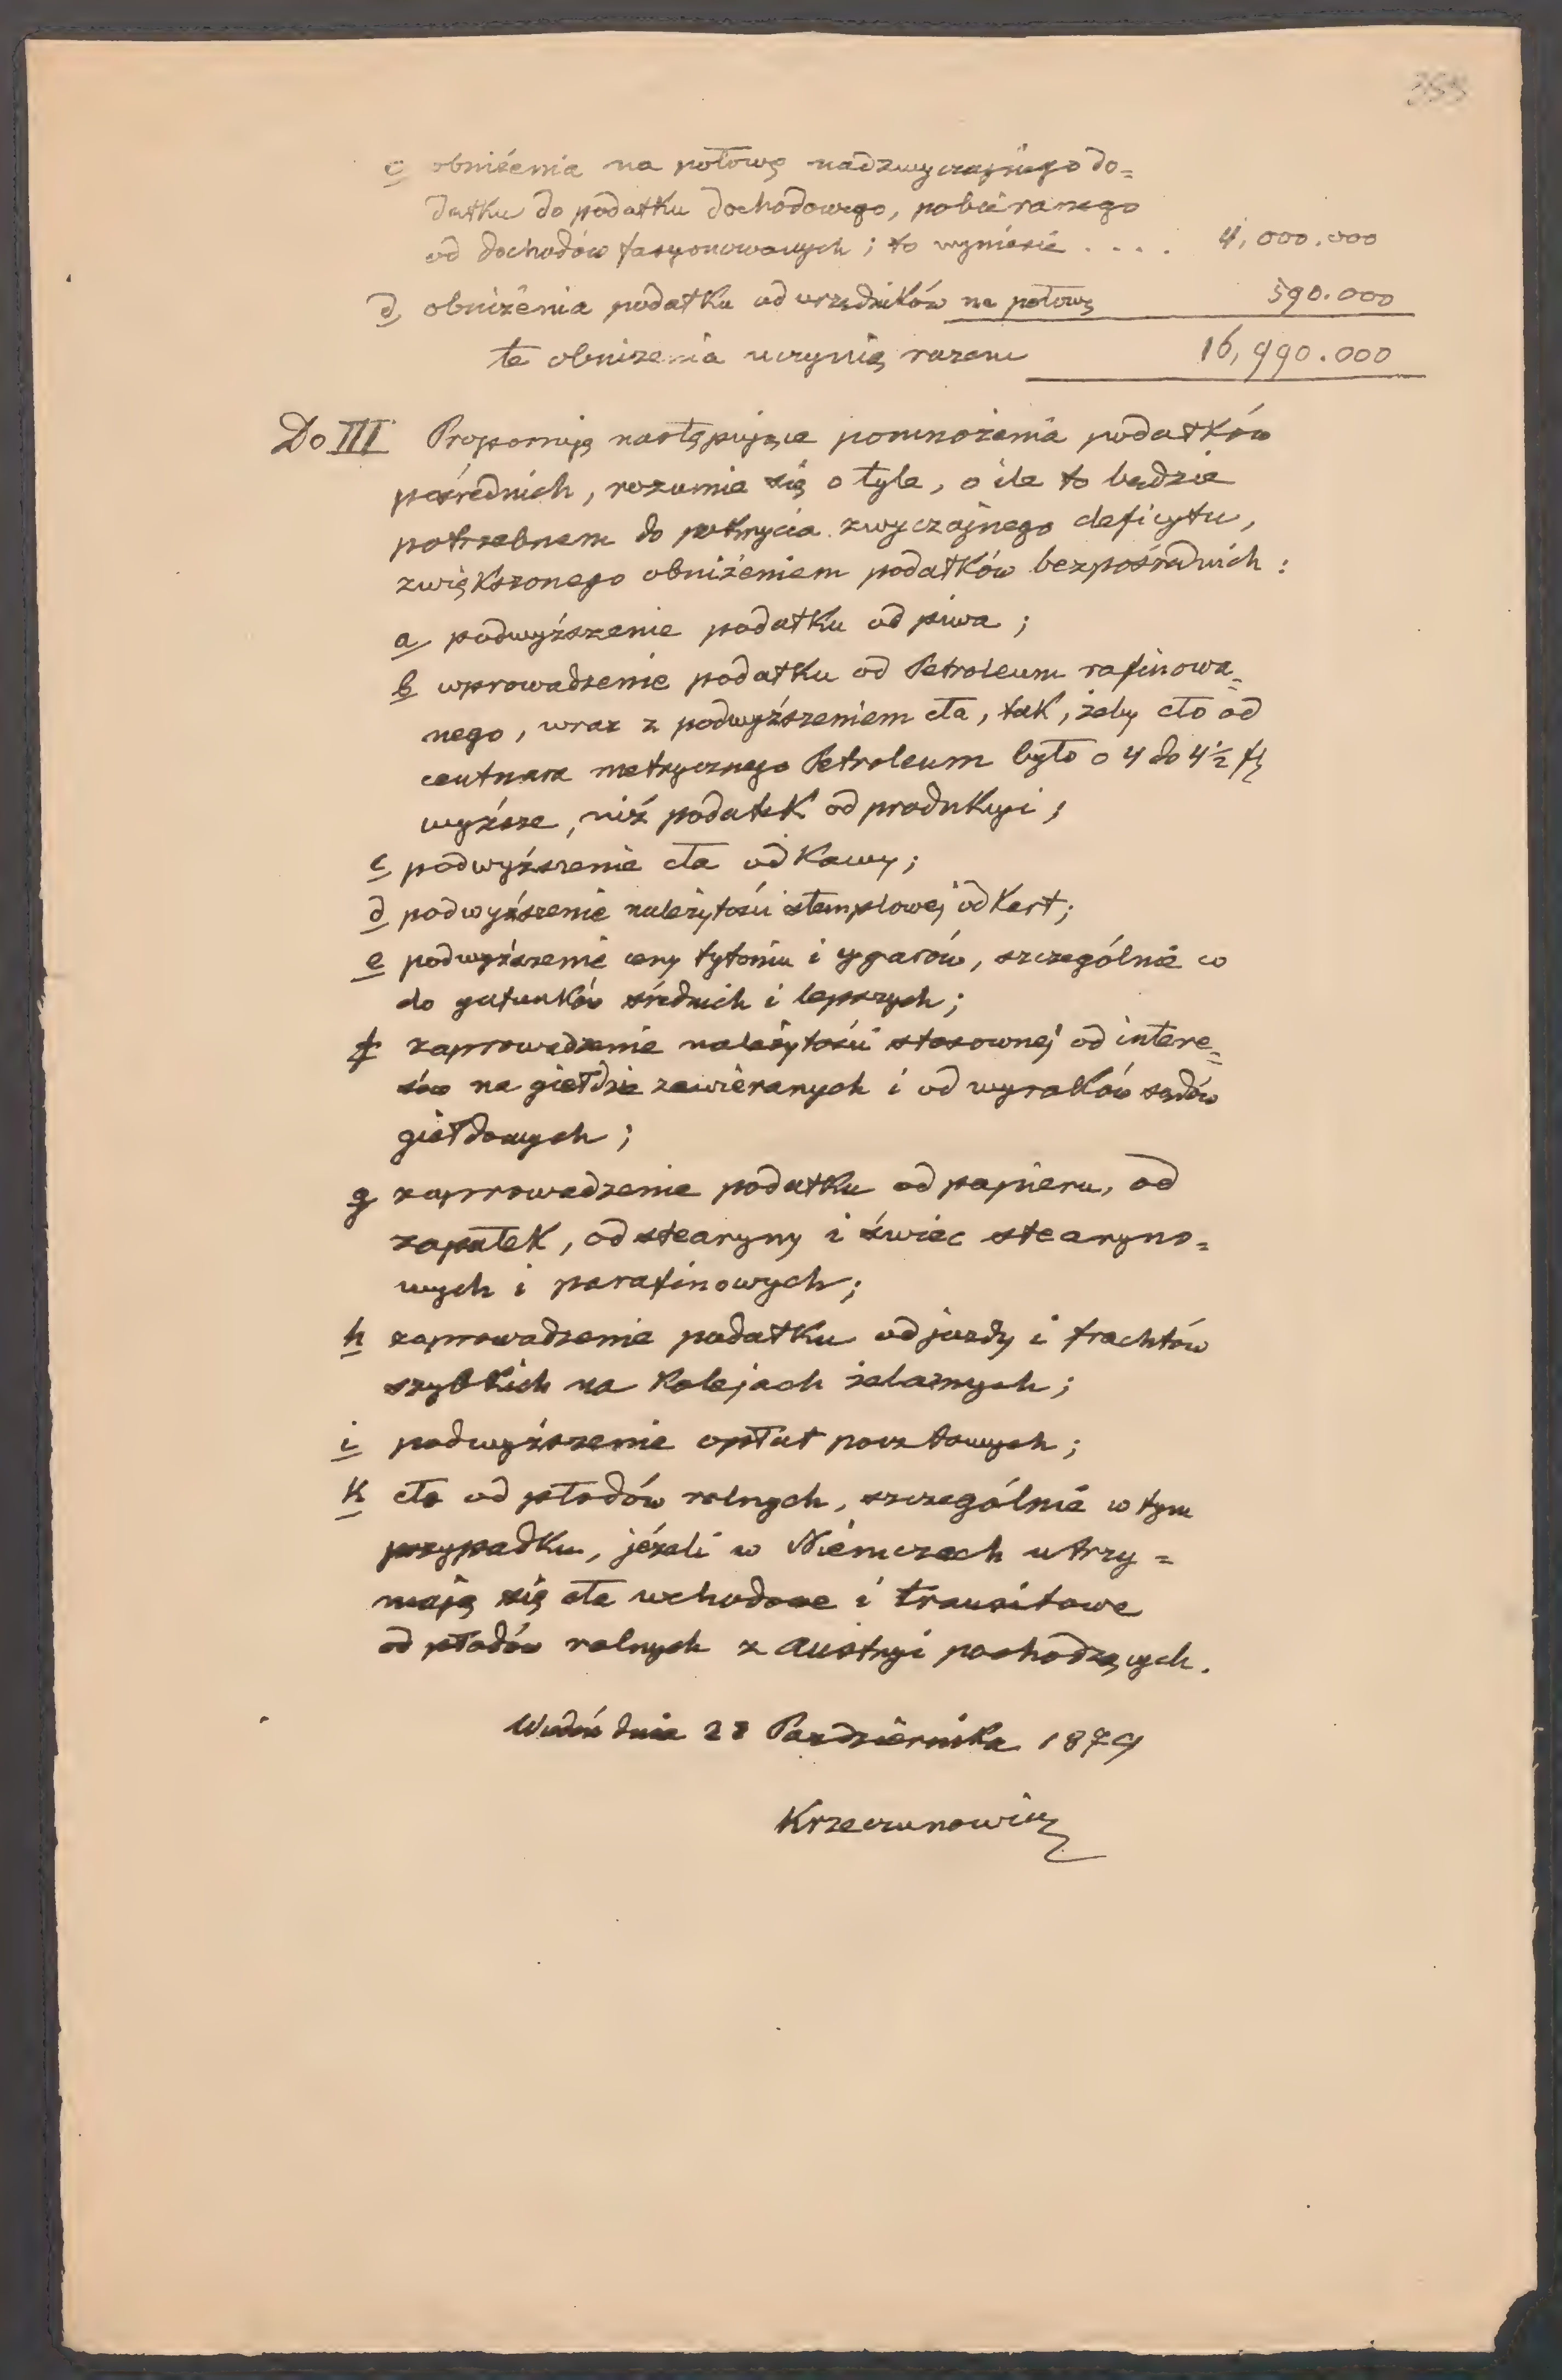 c obniżenia na połowę nadzwyczajnego do=
datku do podatku dochodowego, pobieranego
od dochodów fasyonowanych; to wyniesie . . . . 4,000.000
d, obniżenia podatku od urzędników na połowę 590.000
te obniżenia uczynią razem 16,990.000
Do III Proponuję następujące pomnożenia podatków
pośrednich, rozumie się o tyle, o ile to będzie
potrzebnem do pokrycia zwyczajnego deficytu,
zwiększonego obniżeniem podatków bezpośrednich:
a podwyższenie podatku od piwa;
b wprowadzenie podatku od Petroleum rafinowa=
nego, wraz z podwyższeniem cła, tak, żeby cło od
centnara metrycznego Petroleum było o 4 do 4½ fl
wyższe, niż podatek od produkcyi;
c podwyższenie cła od Kawy;
d podwyższenie należytości stemplowej od Kart;
e podwyższenie ceny tytoniu i cygarów, szczególnie co
do gatunków średnich i lepszych;
f zaprowadzenie należytości stosownej od intere=
sów na giełdzie zawieranych i od wyroków sądów
giełdowych;
g zaprowadzenie podatku od papieru, od
zapałek, od stearyny i świec stearyno=
wych i parafinowych;
h zaprowadzenie podatku od jazdy i frachtów
szybkich na Kolejach żelaznych;
i podwyższenie opłat pocztowych;
k cło od płodów rolnych, szczególnie w tym
przypadku, jeżeli w Niemczech utrzy=
mają się cła wchodowe i transitowe
od płodów rolnych z Austryi pochodzących.
Wiedeń dnia 28 Października 1879
Krzeczunowicz